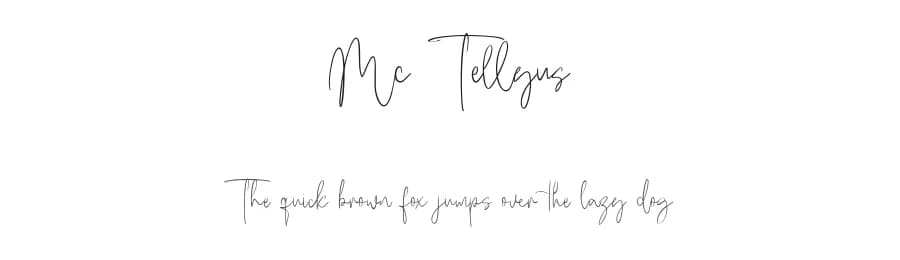 Mc Tellgus
The quick brown fox jumps over the lazy dog